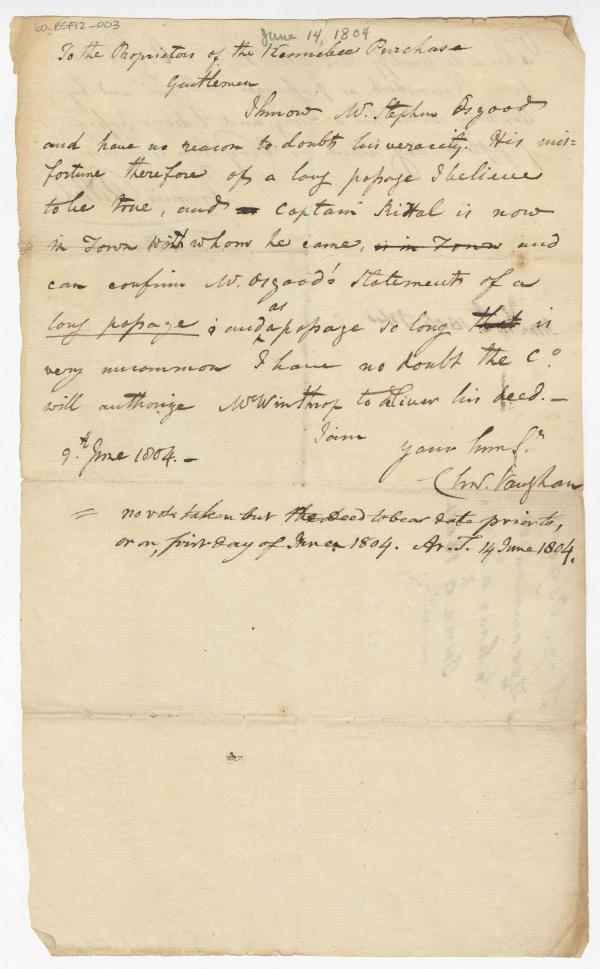 60-BSF12-003
June 14, 1804
To the Proprietors of the Kennebec Purchase
Gentlemen
I know Mr. Stephen Osgood
and have no reason to doubt his veracity. His mis=
fortune therefore of a long passage I believe
to be true, and Captain Kittal is now
in Town with whom he came, is in Town and
can confirm Mr. Osgood's statements of a
long passage; and as a passage so long that is
very uncommon I have no doubt the Co.
will authorize Mr Winthrop to deliver his deed. —
I am
your hum S.t
9.th June 1804. —
Chas. Vaughan
= no vote taken but the deed to bear date prior to,
or on, first day of June 1804. Ar. T. 14 June 1804.